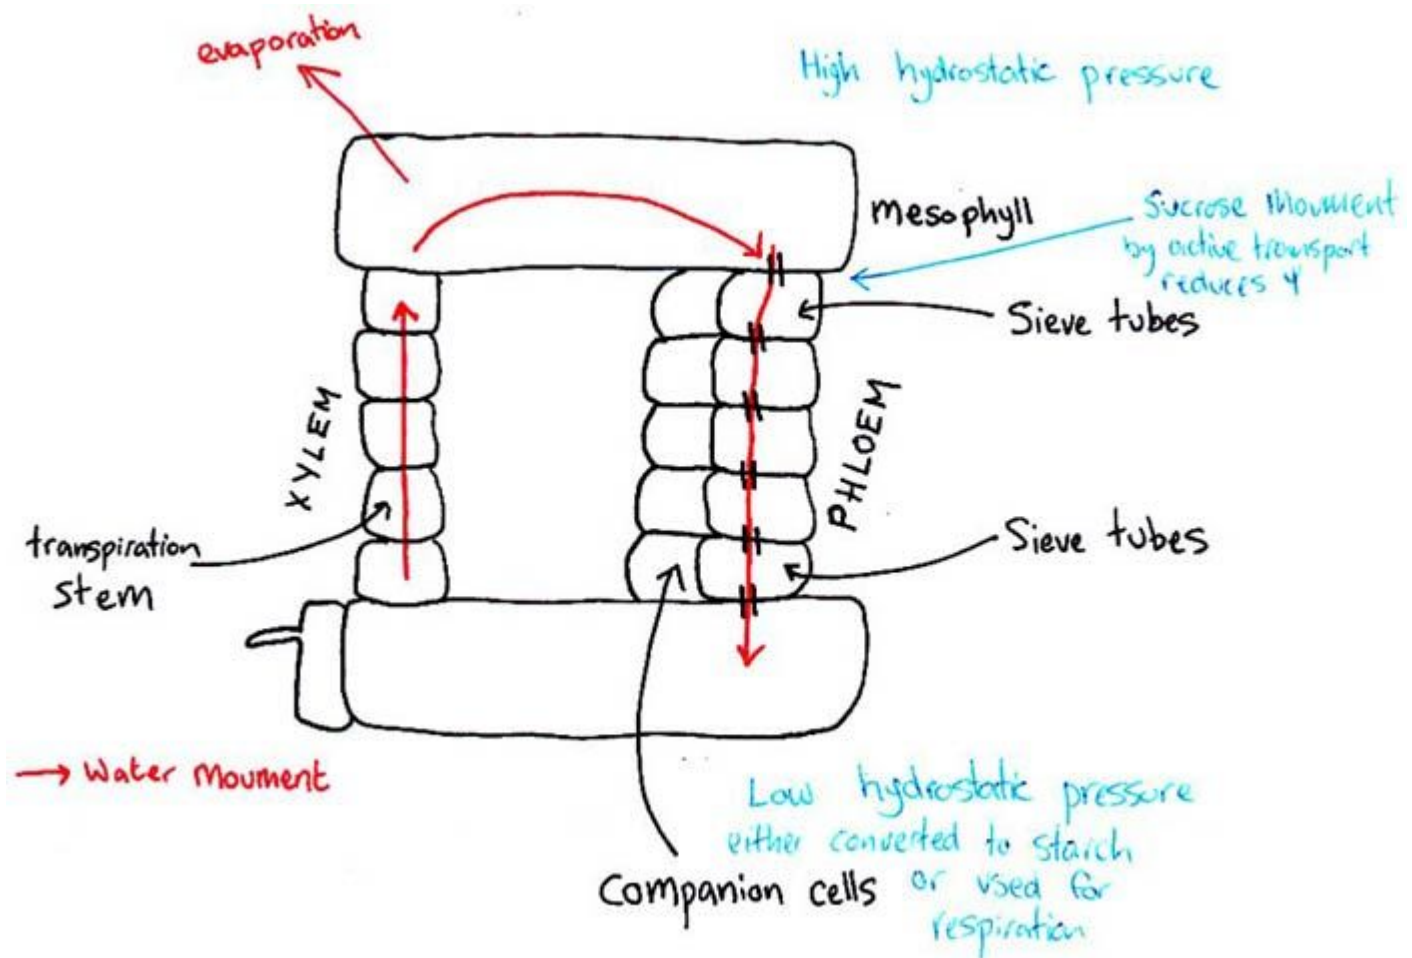 evaporation
High hydrostatic pressure
mesophyll
Sucrose Movment
by active transport
reduces Ψ
Sieve tubes
XYLEM
PHLOEM
transpiration
stem
Sieve tubes
→ Water Movment
Low hydrostatic pressure
either converted to starch
or used for
respiration
Companion cells